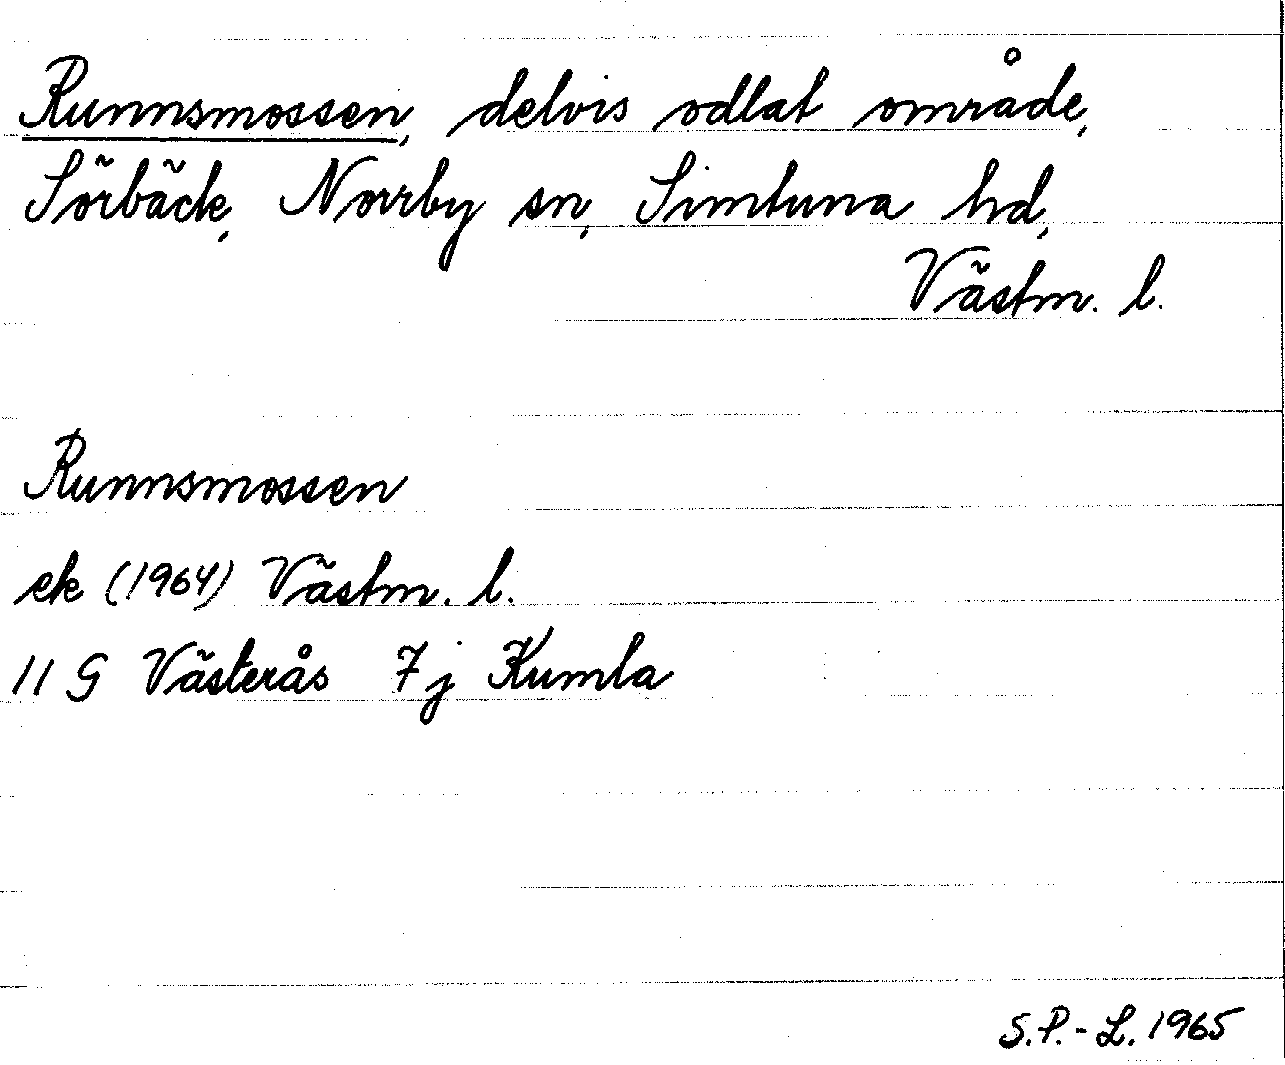 Runnsmossen, delvis odlat område,
Sörbäck, Norrby sn, Simtuna hd,
Västm. l.
Runnsmossen
ek (1964) Västm. l.
11 G Västerås 7j Kumla
S.P.-L. 1965